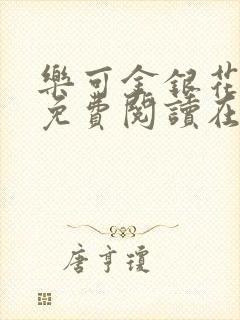 樂可金銀花
免費閱讀在
唐亨瓊